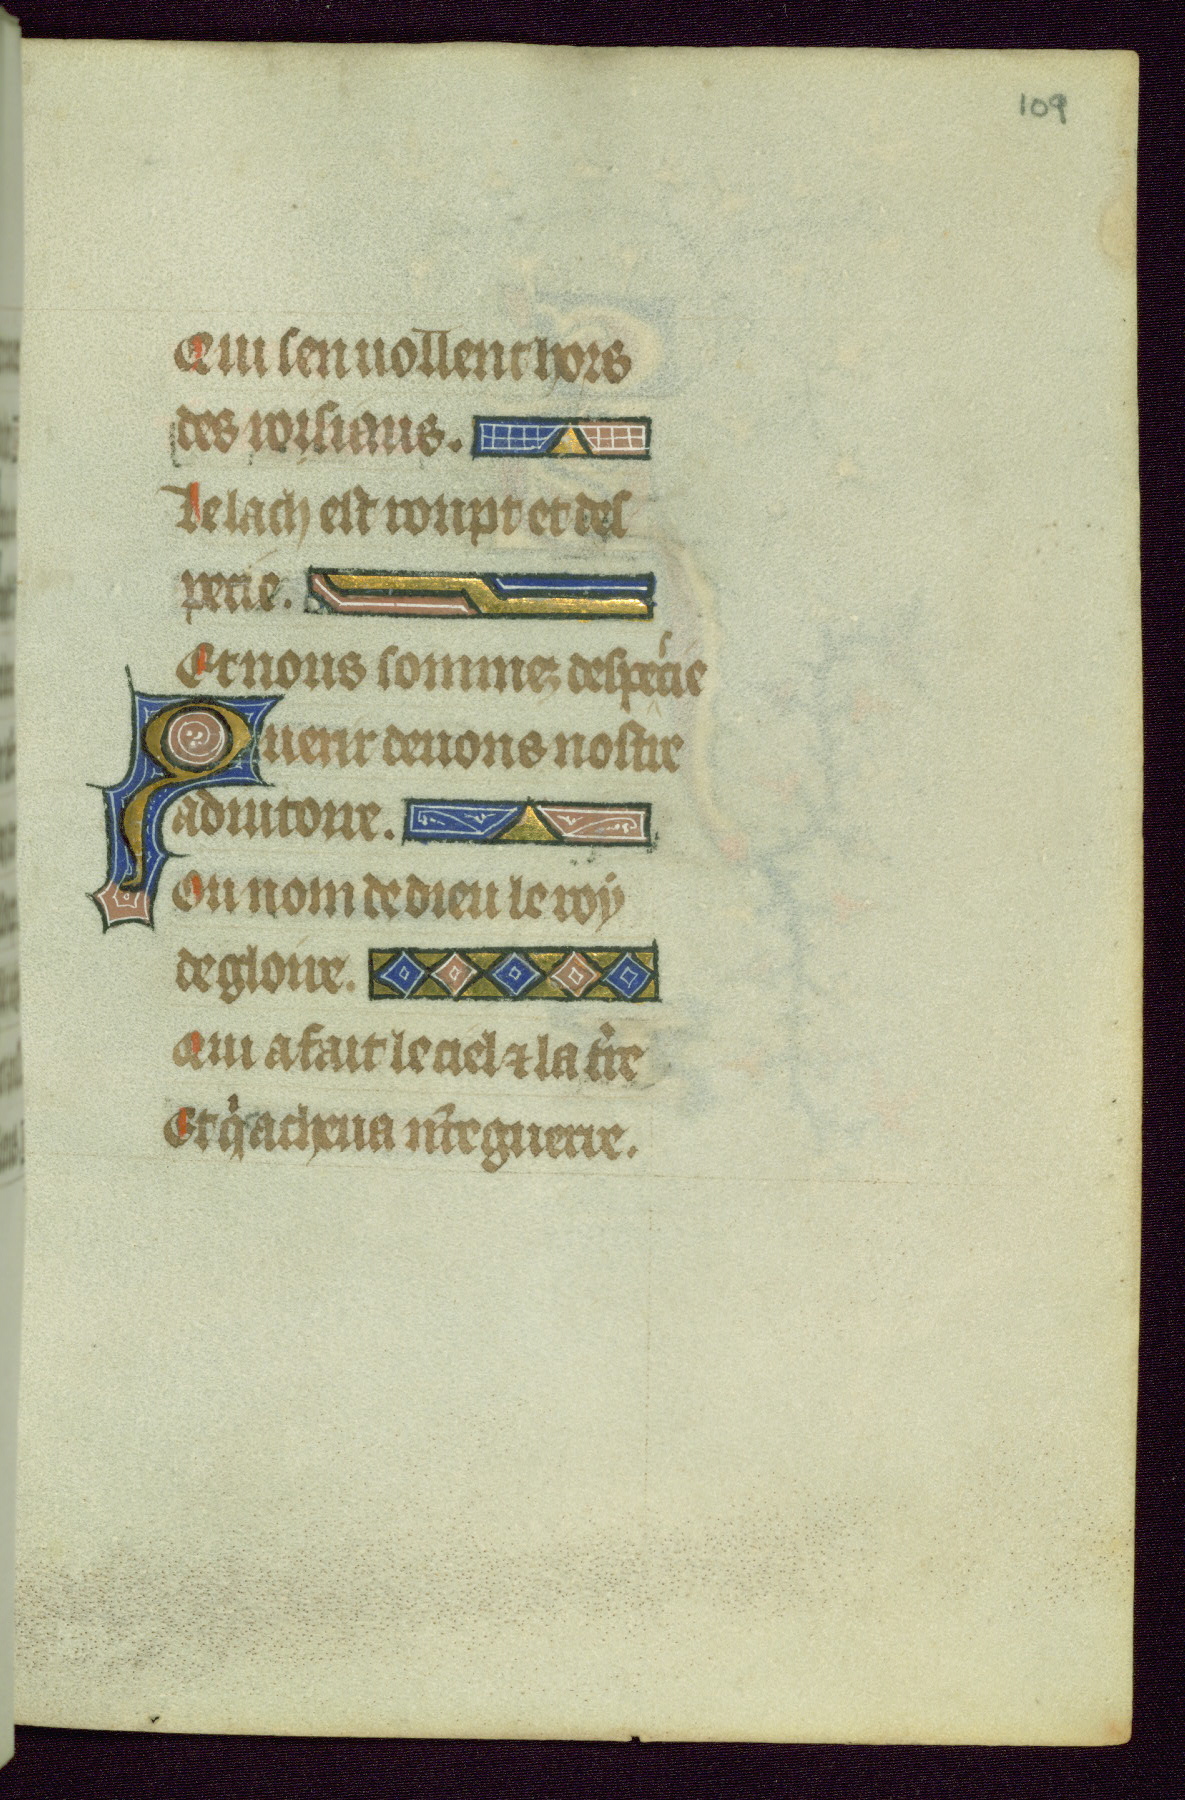 109
Qui sen uollent hors
des roisiaus.
Le lach est roupt et des
pecie.
Et nous sommez despecie
Querir deuons nostre
adiutoire.
Ou nom de dieu le roy
de gloire.
Qui a fait le ciel ⁊ la tr̄e
Et q̇ acheua nr̄e guerre.